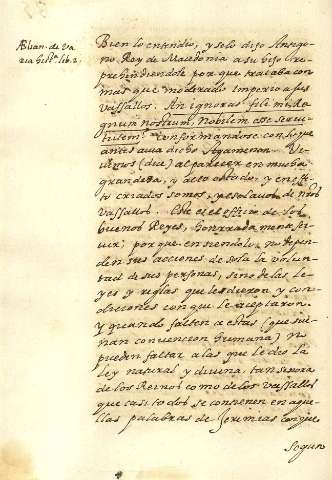 Ælian. de va
ria hist.ª lib. 2.
Bien lo entendio, y solo dijo Antigo-
no Rey de Macedonia a su hijo (re-
prehendiendole por que tratava con
mas que moderado imperio a sus
Vassallos. An ignoras fili mi Re-
gnum nostrum, nobilem esse servi-
tutem. Conformandose con lo que
antes avia dicho Agamenon. Ve-
vimos (dice) al parecer en mucha
grandeza, y alto estado, y en effe-
to criados somos, y esclavos de nros
Vassallos. Este es el officio de los
buenos Reyes, honrradamente ser-
vir; por que en siendolo, no depen-
den sus acciones de sola la volun-
tad de sus personas, sino de las le-
yes y reglas que les dieron, y con-
diciones con que le aceptaron.
y quando falten a estas (que sue-
nan convencion humana) no
pueden faltar a las que les dio la
ley natural y divina, tan señora
de los Reinos como de los Vassallos
que casi todas se contienen en aque-
llas palabras de Jeremias con que
segun